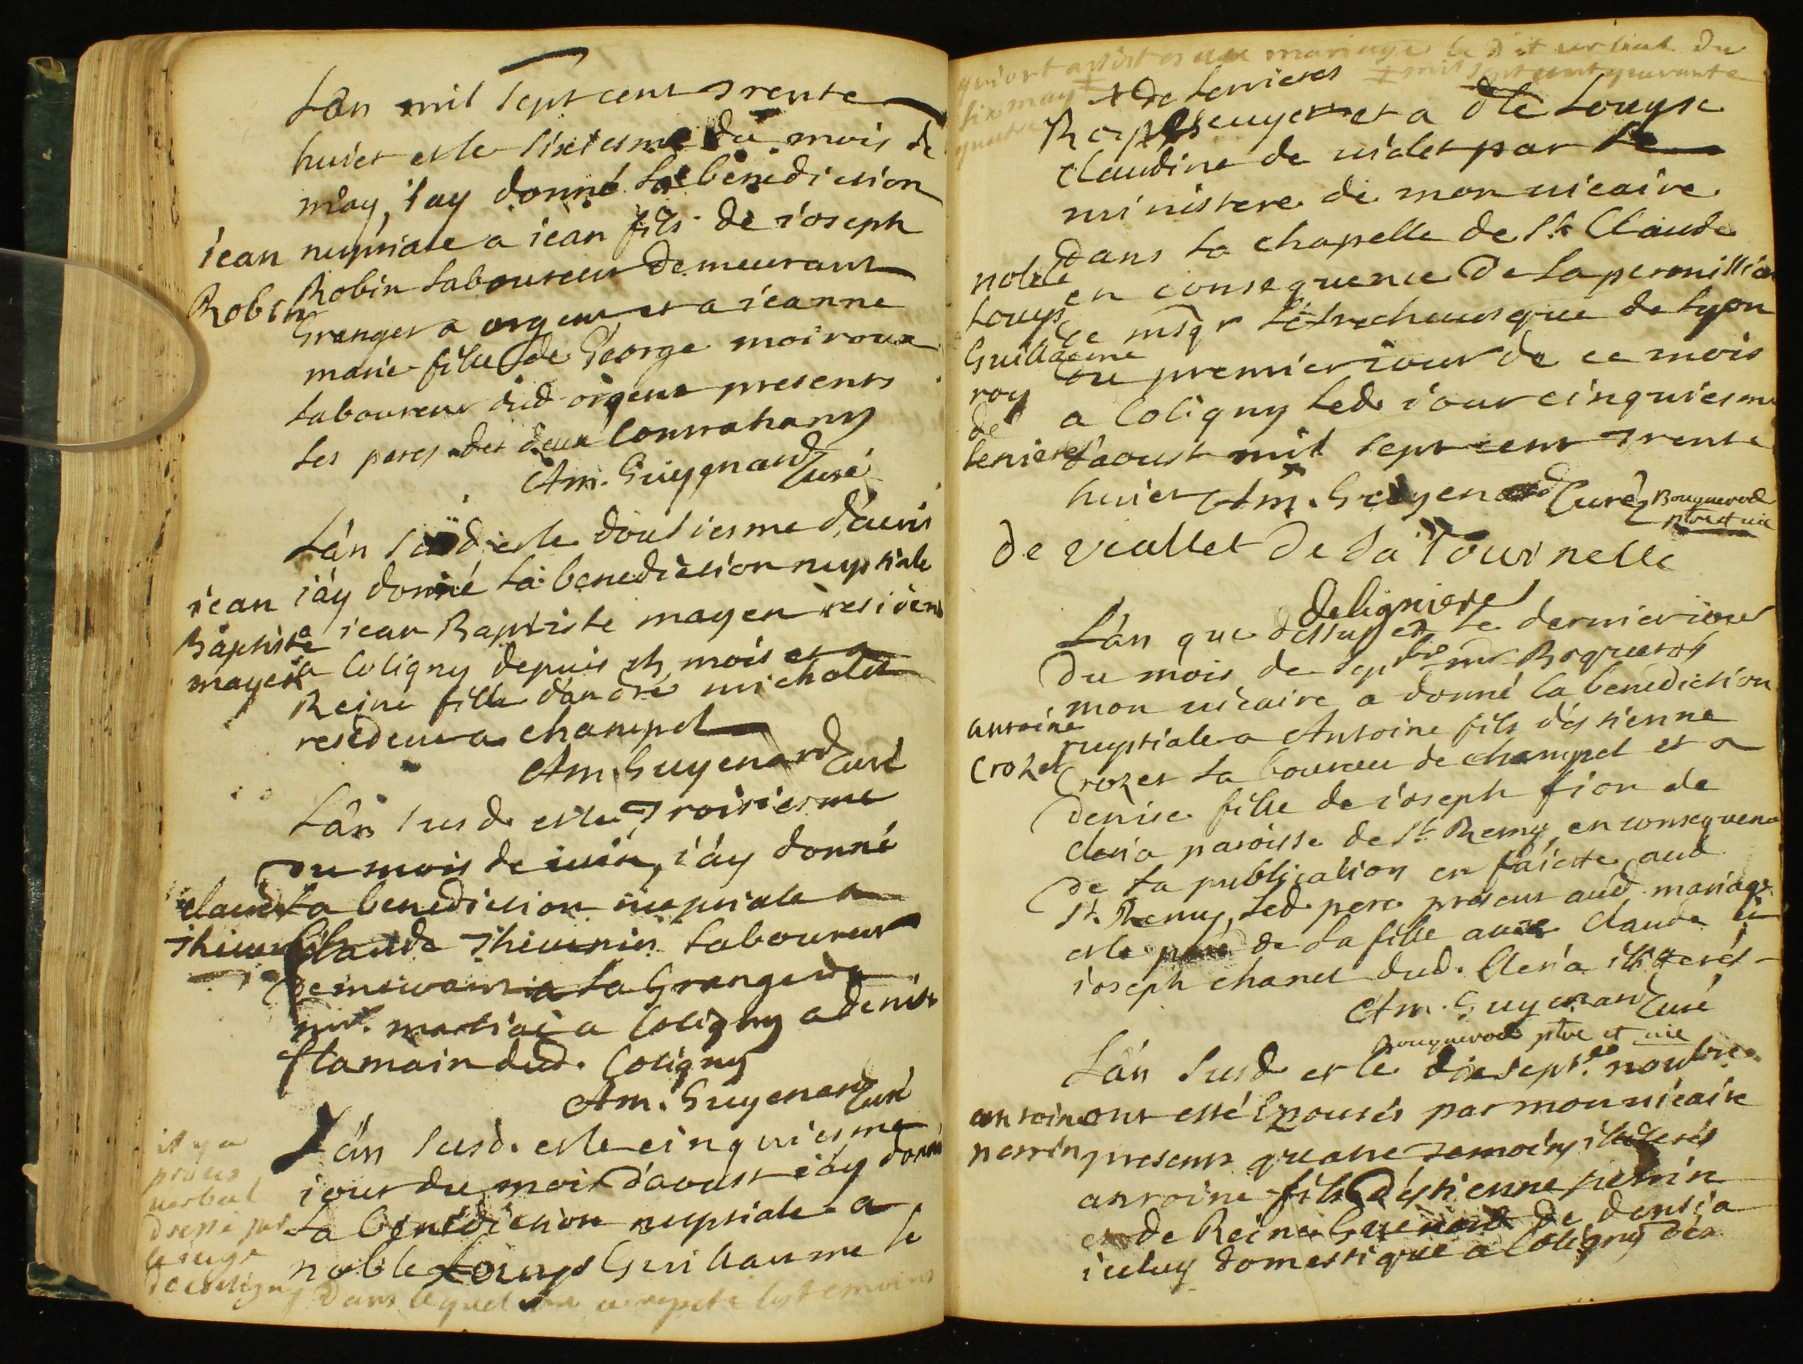 L'an mil sept cent trente
huict et le sixiesme du mois de
may, i'ay donné la bénédiction
iean nuptiale a iean fils de ioseph
Robin Robin laboureur demeurant
Granger a orgeux et a ieanne
marie fille de George moiroux
laboureur dud orgeux presents
les peres des deux contrahans
Am. Guyenard Curé
L'an susd. et le dousiesme d'avril
i'ay donné la benediction nuptiale
iean Baptiste mayen a iean Baptiste mayen resident
a Coligny depuis 15 mois et a
Reine fille d'andré michalet
residente a champel
Am. Guyenard Curé
L'an susd. et le Troisiesme
du mois de iuin, i'ay donné
la benediction nuptiale a
Claude Thievenin laboureur
demeurant a la Grange de
mr. martiai a Coligny a denise
flamain dud. Coligny
Am. Guyenard Curé
L'an susd. et le cinquiesme
iour du mois d'aoust i'ay donné
la bénédiction nuptiale a
noble Louys Guillaume le
il y a
procès
verbal
dressé par
le iuge
de coligny dans lequel les temoins
qui ont assisté au mariage le dit verbal du
six may mil sept cent quarante
quatre
+ de lenieres
Roy + escuyer et a dlle Louyse
Claudine de violet par le
ministere de mon vicaire
dans la chapelle de St. Claude
noble
Louys
Guillaume
roy
de
lenieres
en consequence de la permission
de msgr l'archevesque de Lyon
du premier iour de ce mois
a Coligny led. iour cinquiesme
d'aoust mil sept cent trente
huict Am. Guyenard Curé Bouquerod
ptre et vic
De viallet De La Tournelle
Delignieres
L'an que dessus et le dernier iour
du mois de sepbre mr Boquerod
mon vicaire a donné la benediction
antoine
Crozet
nuptiale a Antoine fils d'estienne
Crozet laboureur de champel et a
Denise fille de ioseph fion de
Cleria paroisse de St. Remy, en consequence
de la publication en faicte aud
St. Remy, led. pere present aud. mariage
et le pere de la fille avec Claude et
ioseph chanel dud. Cleria illiterés
Am. Guyenard Curé
Bouquerod ptre et vic
L'an susd et le dixsept.e novbre
antoine
perrin
ont esté Epousés par mon vicaire
presents quatre temoins illiterés
antoine fils d'estienne perrin
et de Reine Guenard de dontia
iceluy domestique a Coligny des